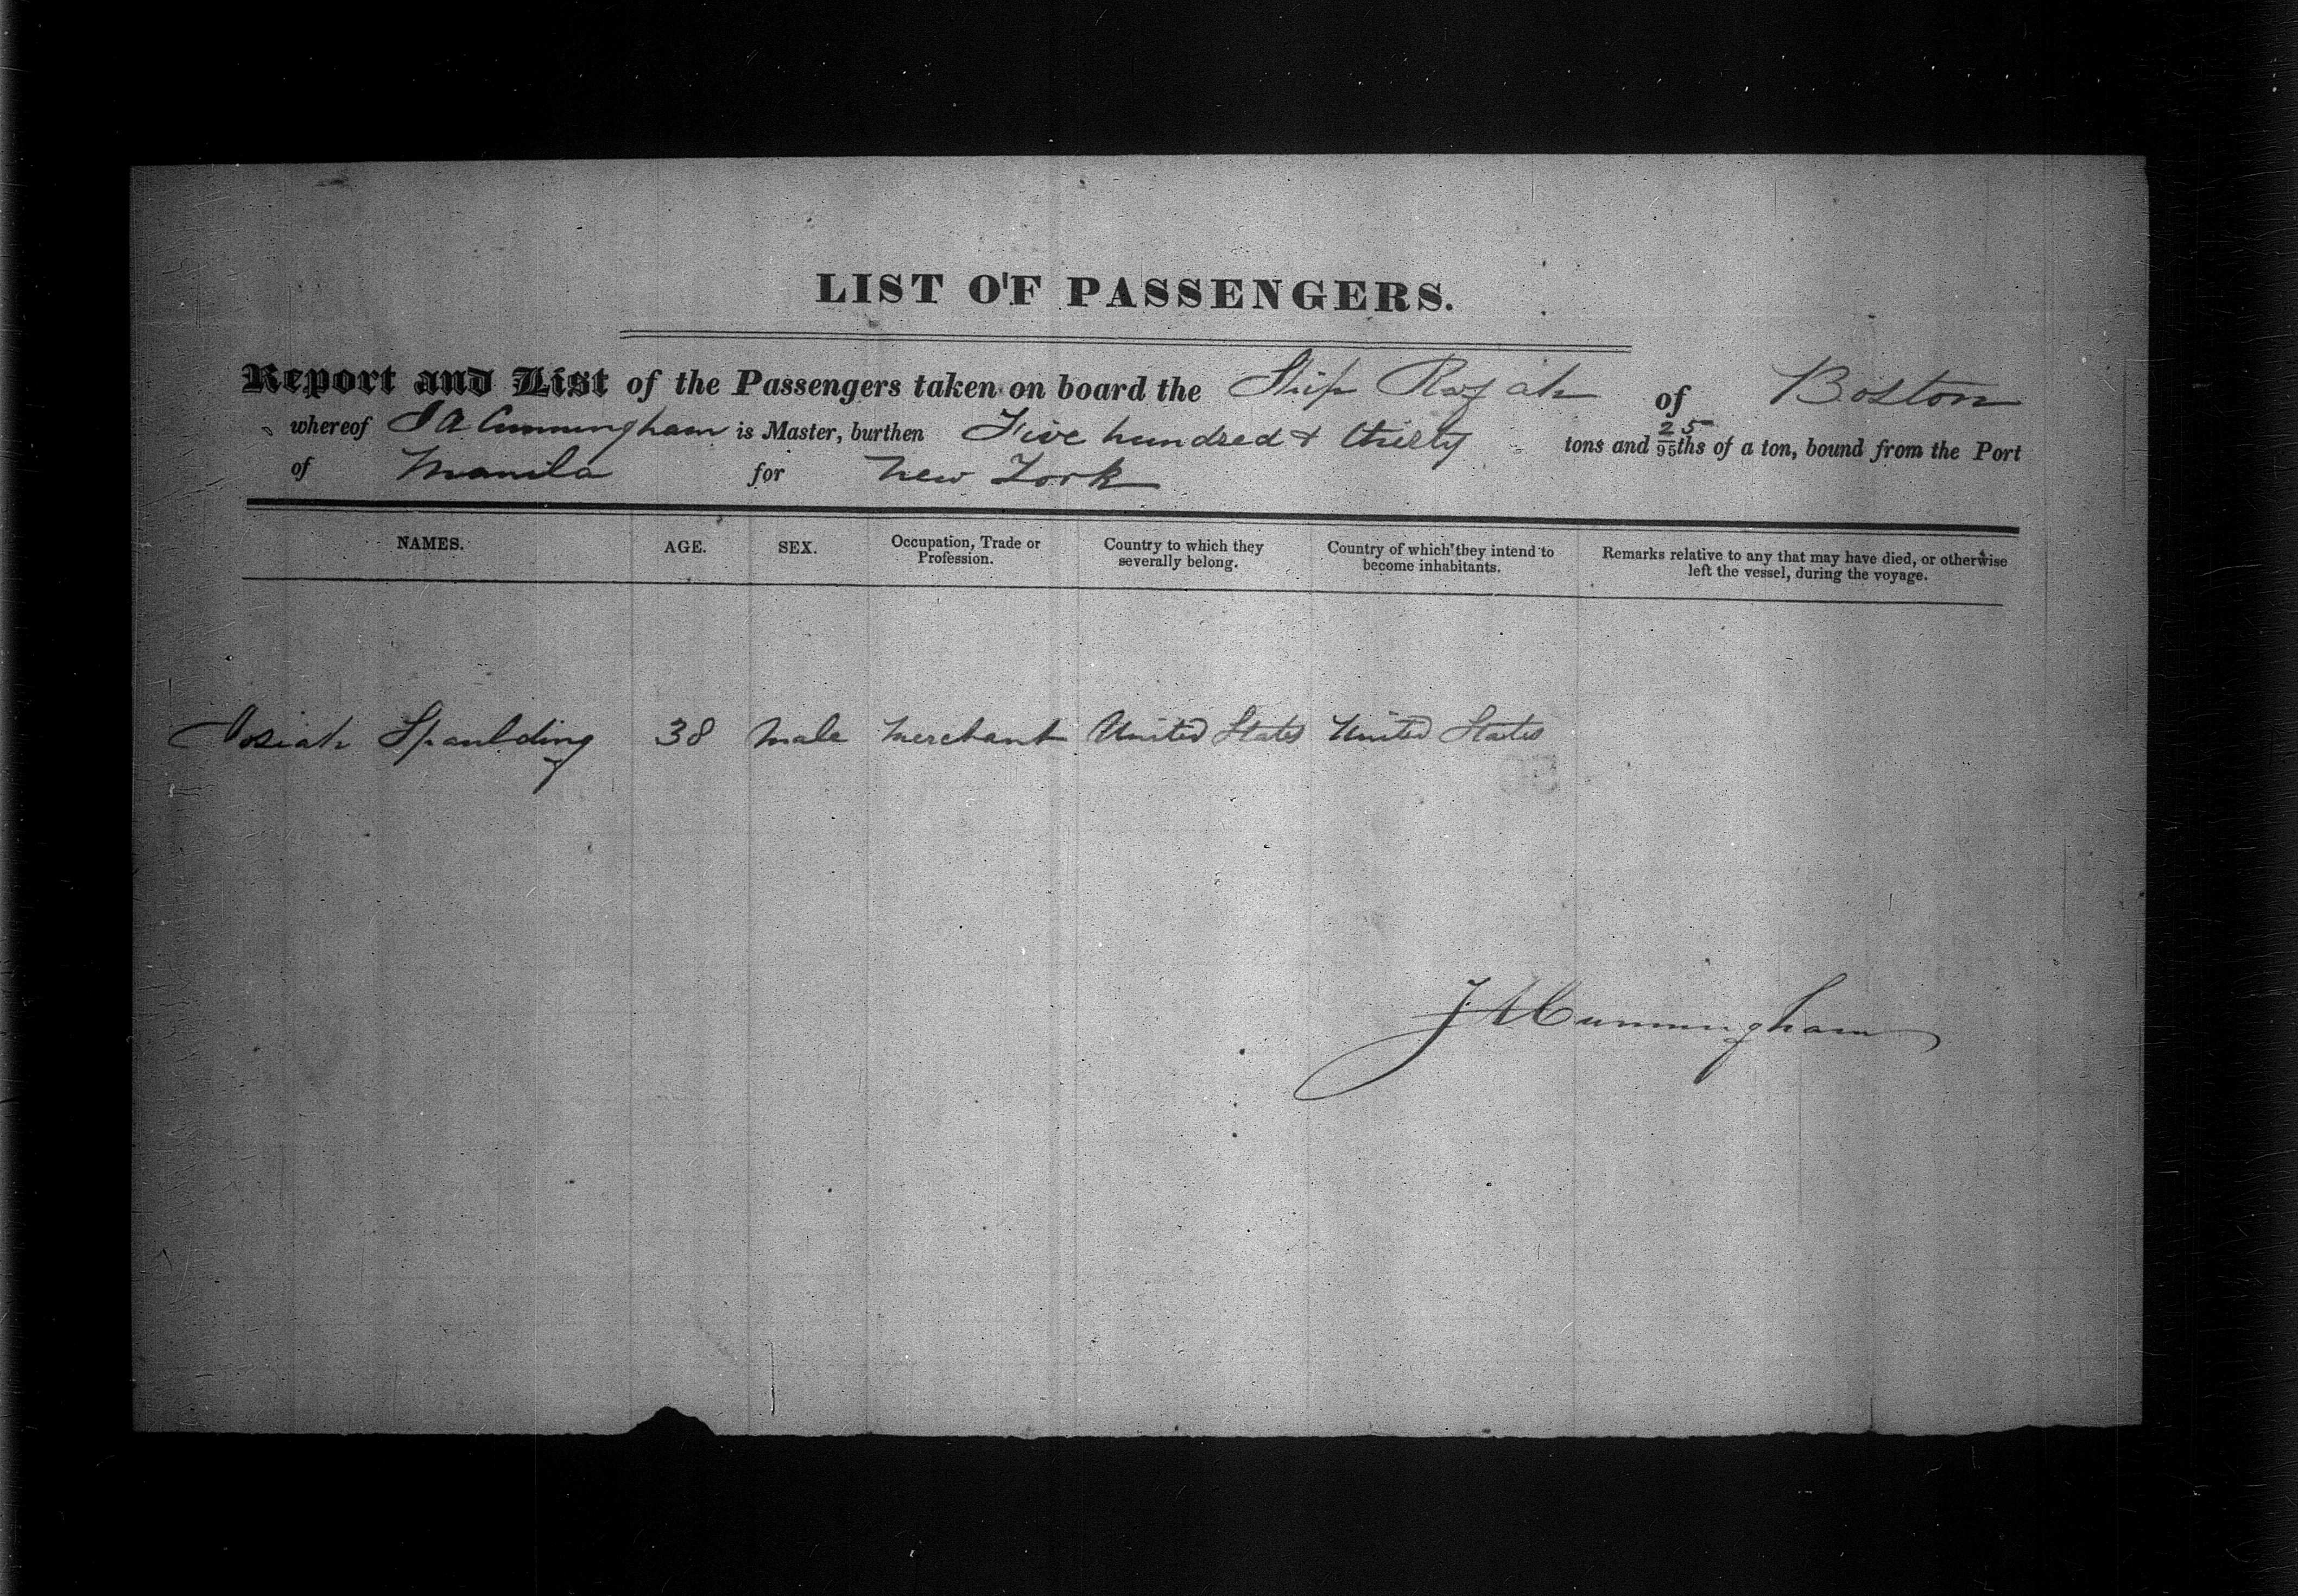 LIST OF PASSENGERS.
Report and List of the Passengers taken on board the Ship Rajah of Boston
whereof J A Cunningham is Master, burthen Five hundred & thirty tons and 25/95ths of a ton, bound from the Port
of Manila for New York
NAMES. AGE. SEX. Occupation, Trade or Profession. Country to which they severally belong. Country of which they intend to become inhabitants. Remarks relative to any that may have died, or otherwise left the vessel, during the voyage.
Josiah Spaulding 38 Male Merchant United States United States
J A Cunningham